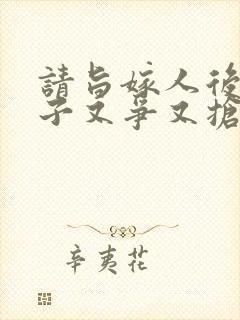 請旨嫁人後
子又爭又搶
辛夷花